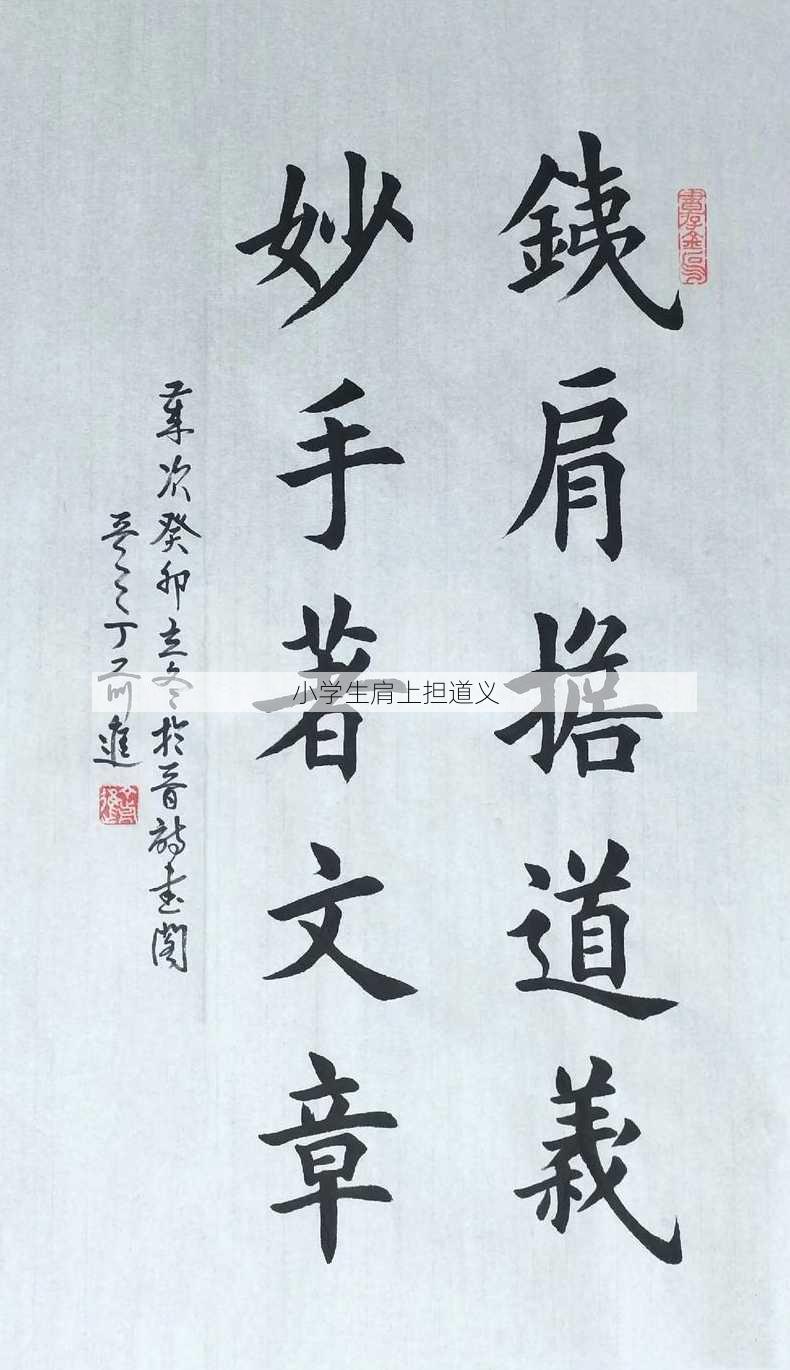 銕肩擔道義
妙手著文章
歲次癸卯立冬於書閣
丁前進
小学生肩上担道义